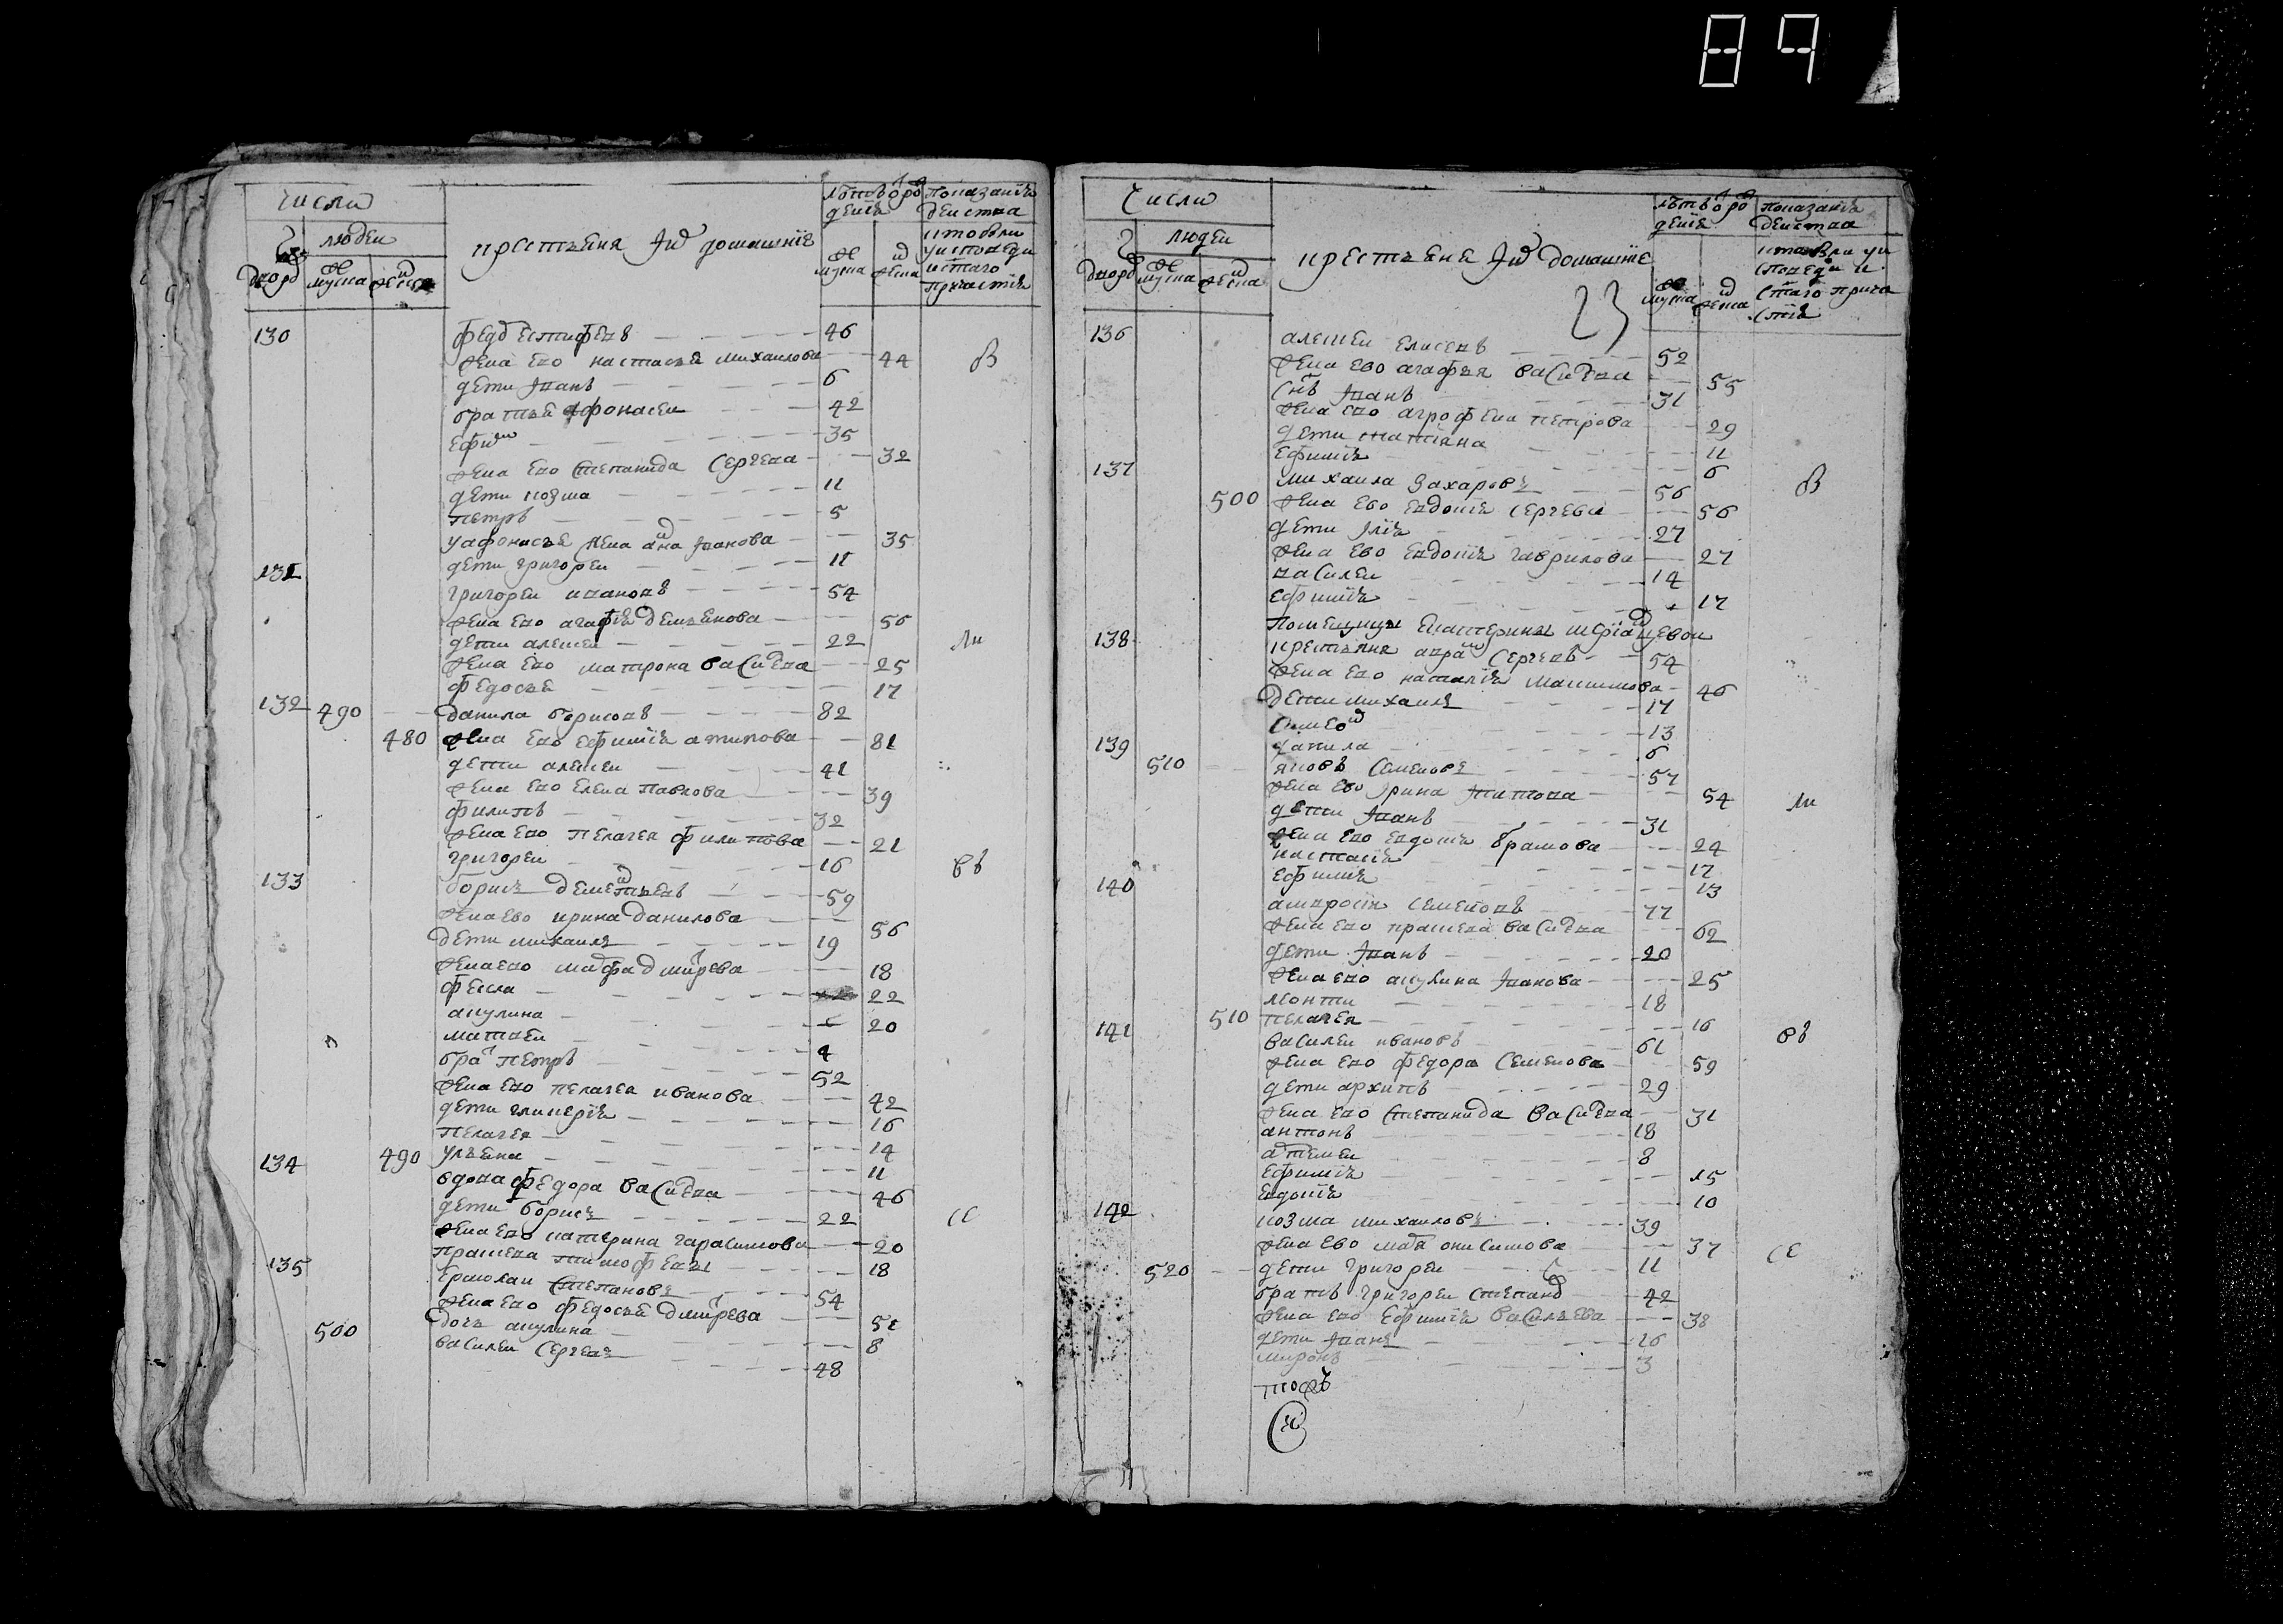 89
числа
людей
дворо
муска
женска
крестьяня и домашнiе
лет в рождения
муска
женска
показание действа кто были у исповеди и святого причастия
130 федо естифеевъ 46
жена ево настасья михаилова 44 В
дети иванъ 6
братья афонасеи 42
ефим 35
жена ево степанида сергеева 32
дети козма 11
петръ 5
у афонасья жена анна иванова 35
дети григореи 11
131 григореи ивановъ 54
жена ево агафья деменова 50
дети алексеи 22 ли
жена ево матрона васильева 25
федосья 17
132 490 данила борисовъ 82
480 жена ево ефимiя антипова 81
дети алексеи 41
жена ево елена павлова 39
филипъ 32
жена ево пелагея филипова 21
григореи 16 въ
133 борисъ дементьевъ 59
жена ево ирина данилова 56
дети михаила 19
жена ево марфа дмитрева 18
фекла 22
акулина 20
матвеи 4
братъ петръ 52
жена ево пелагея иванова 42
дети гликерiя 16
пелагея 14
134 490 ульяна 11
вдова федора васильева 46
дети борисъ 22 се
жена ево катерина гарасимова 20
прасковя тимофеева 18
135 ермолаи степановъ 54
жена ево федосья дмитрева 51
дочь акулина 8
500 василеи сергеевъ 48
числа
людеи
дворо
муска
женска
крестьяня и домашнiе
23
лет в рождения
муска
женска
показанiя действа кто были у исповеди и святого причастiя
136 алексеи елисеевъ 52
жена ево агафья васильева 55
сынъ иванъ 31
жена ево агрофена петрова 29
дети татiяна 11
ефимiя 6
137 михаила захаровъ 56 В
500 жена ево евдокiя сергева 56
дети илiя 27
жена ево евдокiя гаврилова 27
василеи 14
ефимiя 17
помещицы екатерины
138 крестьяня аврам сергеевъ 54
жена ево наталiя максимова 46
дети михаила 17
симеон 13
139 данила 6
510 яковъ семеновъ 57
жена ево ирина титова 54 ли
дети иванъ 31
жена ево евдокiя 24
настасiя 17
ефимiя 13
140 амвросiи семеновъ 77
жена ево праскева васильева 62
дети иванъ 20
жена ево акулина иванова 25
леонти 18
510 пелагея 16
141 василеи ивановъ 61 въ
жена ево федора семенова 59
дети архипъ 29
жена ево степанида васильева 31
антонъ 18
алексеи 8
ефимiя 15
евдокiя 10
142 козма михаиловъ 39
жена ево марья онисимова 37 се
520 дети григореи 11
братъ григореи степано 42
жена ево ефимiя васильева 38
дети иванъ 16
миронъ 3
тожъ